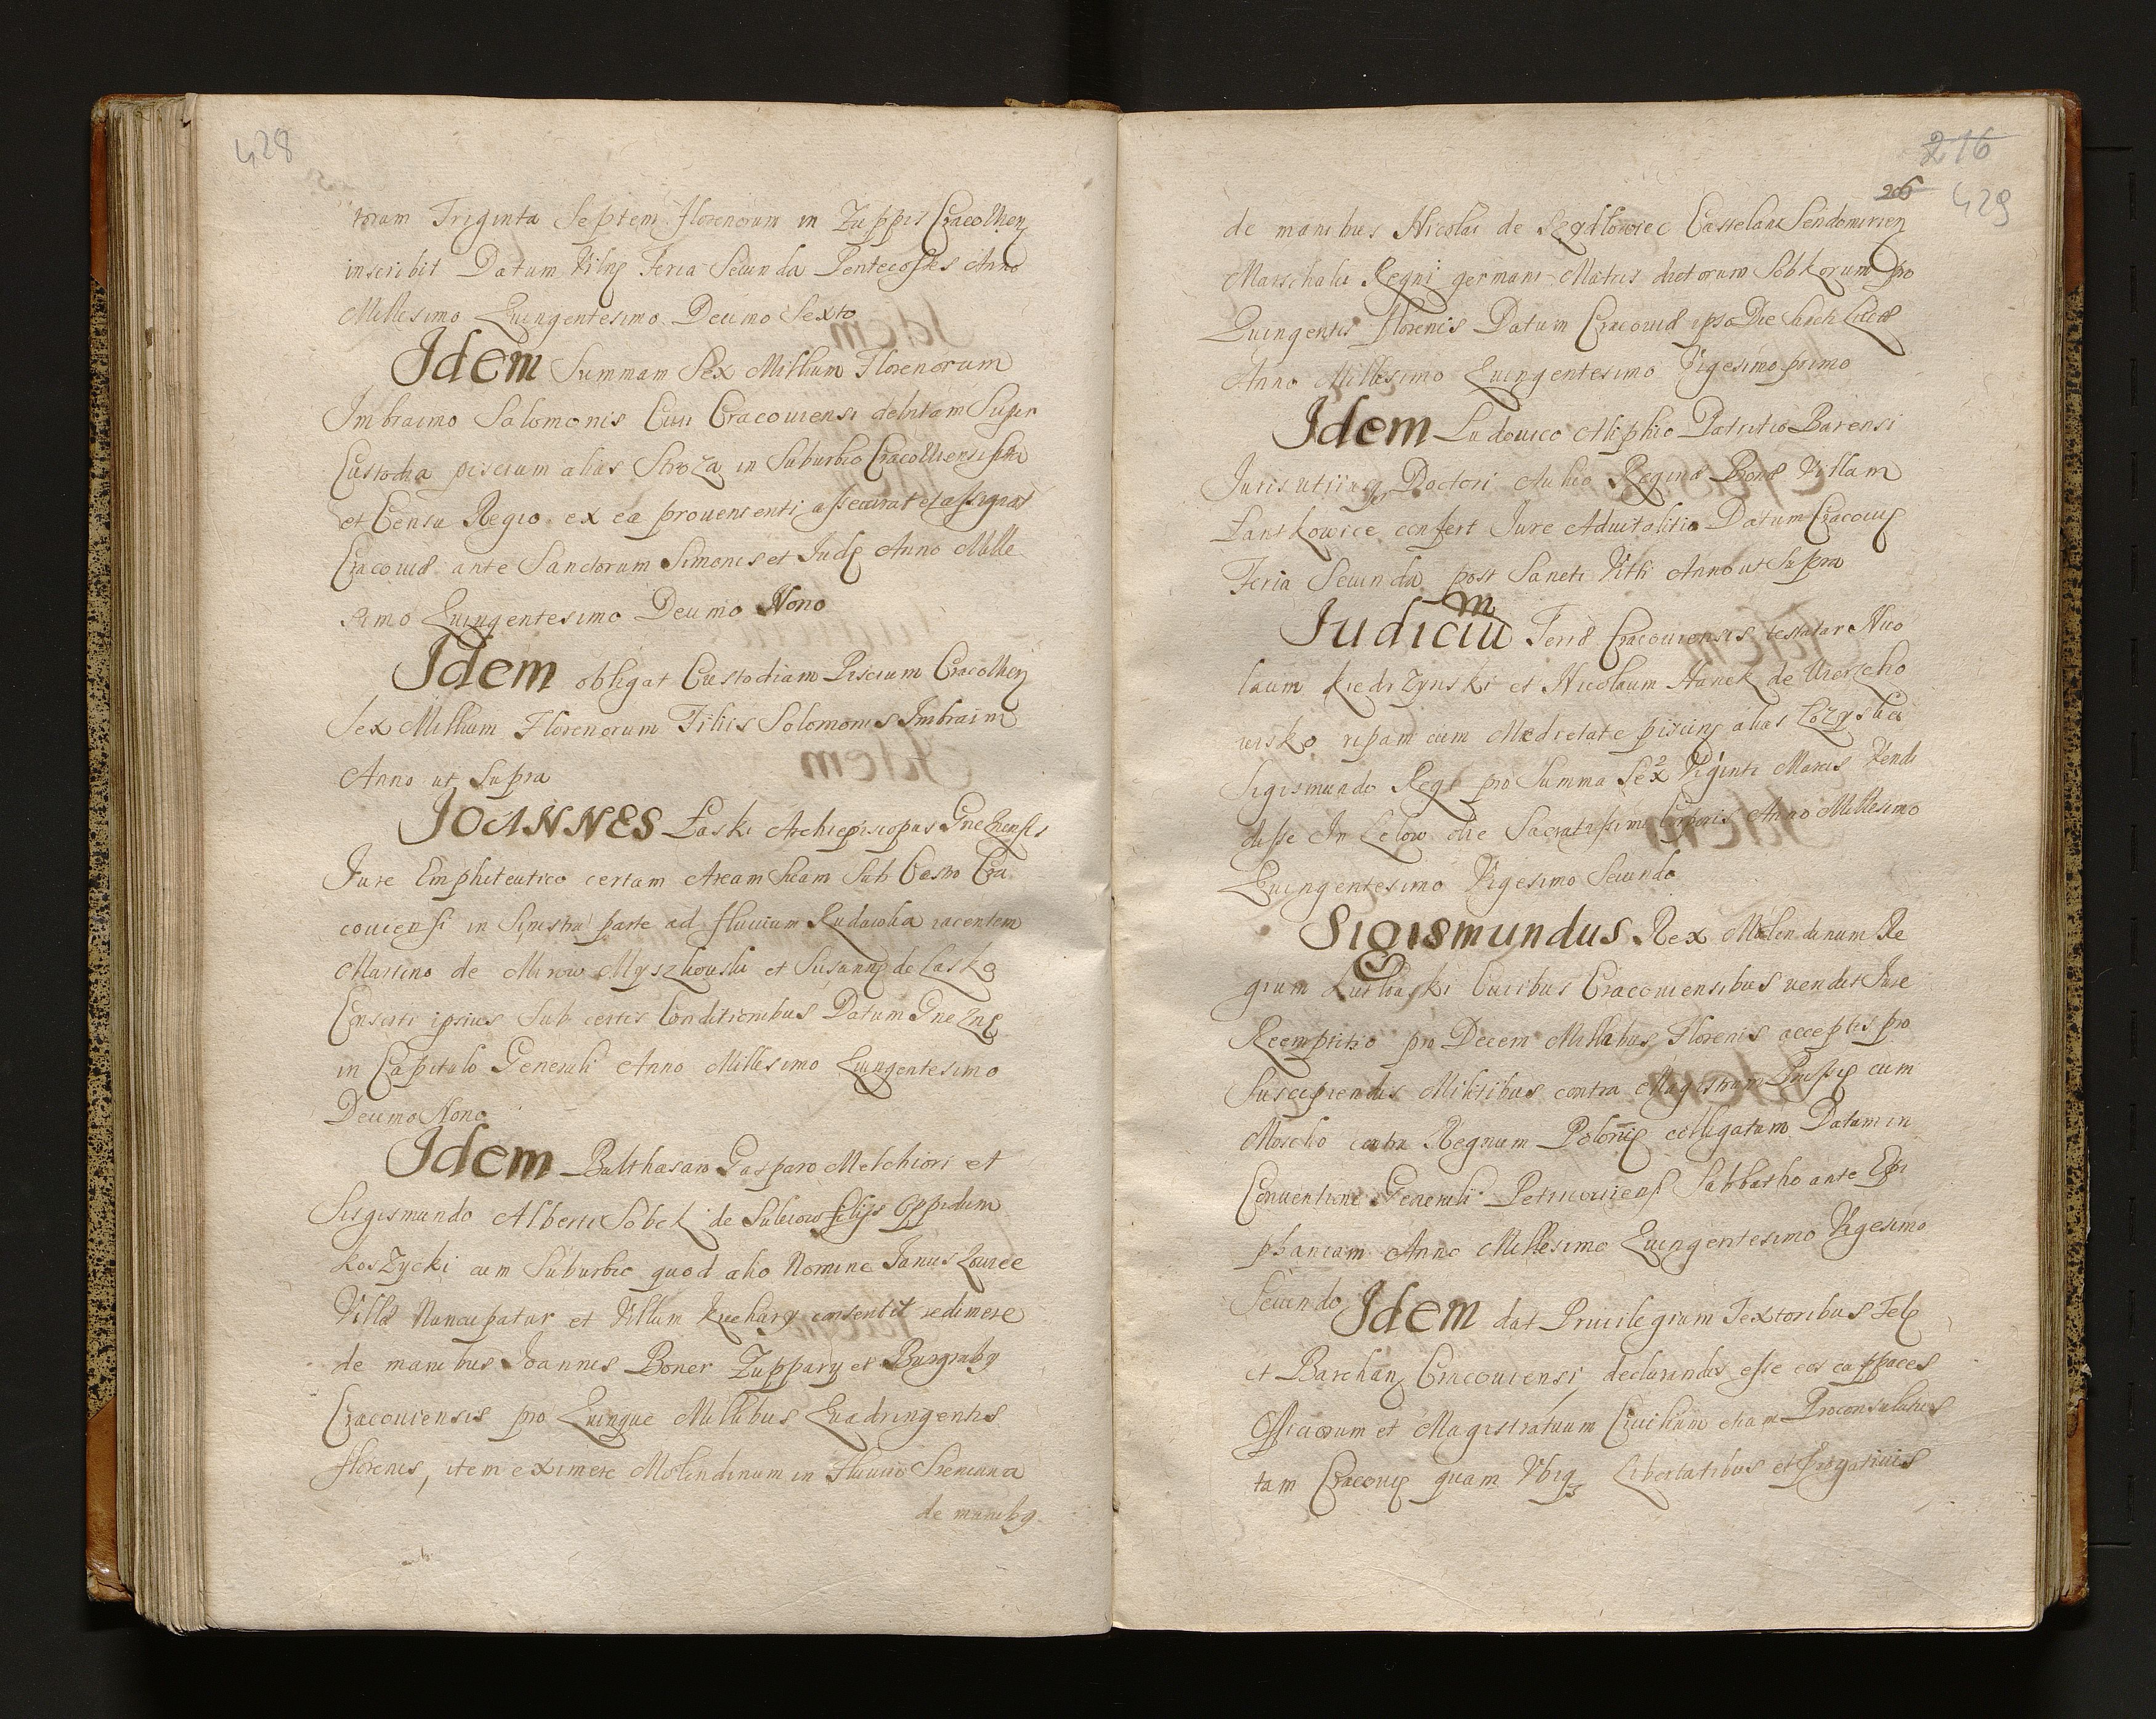 428
Triginta Septem florenorum in Zuppis Cracovien
inscribit Datum Vilnę Feria Secunda Pentecostes Anno
Millesimo Quingentesimo Decimo Sexto
Idem Summam Sex Millium Florenorum
Imbraimo Salomonis Civi Cracoviensi debitam Super
Custodia piscium alias Stroza in Suburbio Cracoviensi sita
et Censu Regio ex ea provenienti assecurat et assignat
Cracoviæ ante Sanctorum Simonis et Judę Anno Mille
simo Quingentesimo Decimo Nono
Idem obligat Custodiam Piscium Cracovien
Sex Millium Florenorum Filiis Solomonis Imbraim
Anno ut Supra
JOANNES Łaski Archiepiscopus Gneznensis
Jure Emphiteutico certam Aream Suam Sub Castro Cra
coviensi in Sinistra parte ad fluvium Rudawka iacentem
Martino de Mirow Myszkowski et Susannę de Łasko
Consorti ipsius Sub certis Conditionibus Datum Gneznę
in Capitulo Generali Anno Millesimo Quingentesimo
Decimo Nono
Idem Balthasaro Gasparo Melchiori et
Sigismundo Alberti Sobek de Sulejow filijs Oppidum
Koszycki cum Suburbio quod alio Nomine Janus Zowice
Villæ Nuncupatur et Villam Kuchary consentit redimere
de manibus Joannis Boner Zuppary et Burgraby
Cracoviensis pro Quinque Millibus Quadringentis
florenis, item eximere Molendinum in Fluvio Sreniawa
de maniby
216
206
429
de manibus Nicolai de Szydłowiec Castelani Sendomirien
Marschalci Regni germani Matris dictorum Sobkorum pro
Quingentis florenis Datum Cracoviæ ipso Die Sanctæ Luciæ
Anno Millesimo Quingentesimo Vigesimo primo
Idem Ludovico Aliphio Patritio Barensi
Juris utriusq Doctori Aulico Reginæ Bonæ Villam
Lantkowice confert Jure Advitalitio Datum Cracovię
Feria Secunda post Sancti Viti Anno ut Supra
Judiciu m Terræ Cracoviensis testatur Nico
laum Kiedrzynski et Nicolaum Stanek de Wierzcho
wisko ripam cum Medietate piscinę alias Łozyska
Sigismundo Regi pro Summa Sex Viginti Marcis Vendi
disse In Lelow die Sacratissimi Corporis Anno Millesimo
Quingentesimo Vigesimo Secundo
Sigismundus Rex Molendinum Re
gium Kutłowski Civibus Cracoviensibus vendit Jure
Reemptitio pro Decem Millibus Florenis acceptis pro
Suscipiendis Militibus contra Magistrum Prussię cum
Moscho contra Regnum Polonię colligatum Datum in
Conventione Generali Petricoviens Sabbatho ante Epi
phaniam Anno Millesimo Quingentesimo Vigesimo
Secundo Idem dat Privilegium Textoribus Telę
et Barchan Cracoviensi declarandis esse eos cappaces
Officiorum et Magistratuum Civilium etiam Proconsulatus
tam Cracovię quam Ubiq Libertatibus et Prrogativis